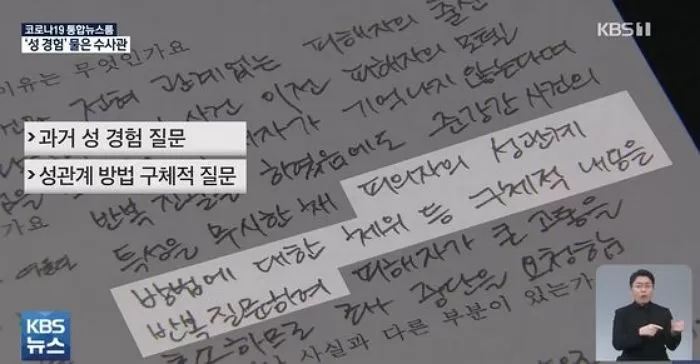 코로나19 통합뉴스룸
'성 경험' 물은 수사관
KBS1
이유는 무엇인가요
전혀 관계없는 피해자의 출산
사건 이전 피해자의 모텔
가 기억나지 않는다며
> 과거 성 경험 질문
반복 하였음에도 준강간 사건의
> 성관계 방법 구체적 질문
특성을 무시한 채 피의자의 성관계
방법에 대한 체위 등 구체적 내용을
반복 질문하여 피해자가 큰 고통을
호소하므로 조사 중단을 요청함
사실과 다른 부분이 있는가
KBS
뉴스